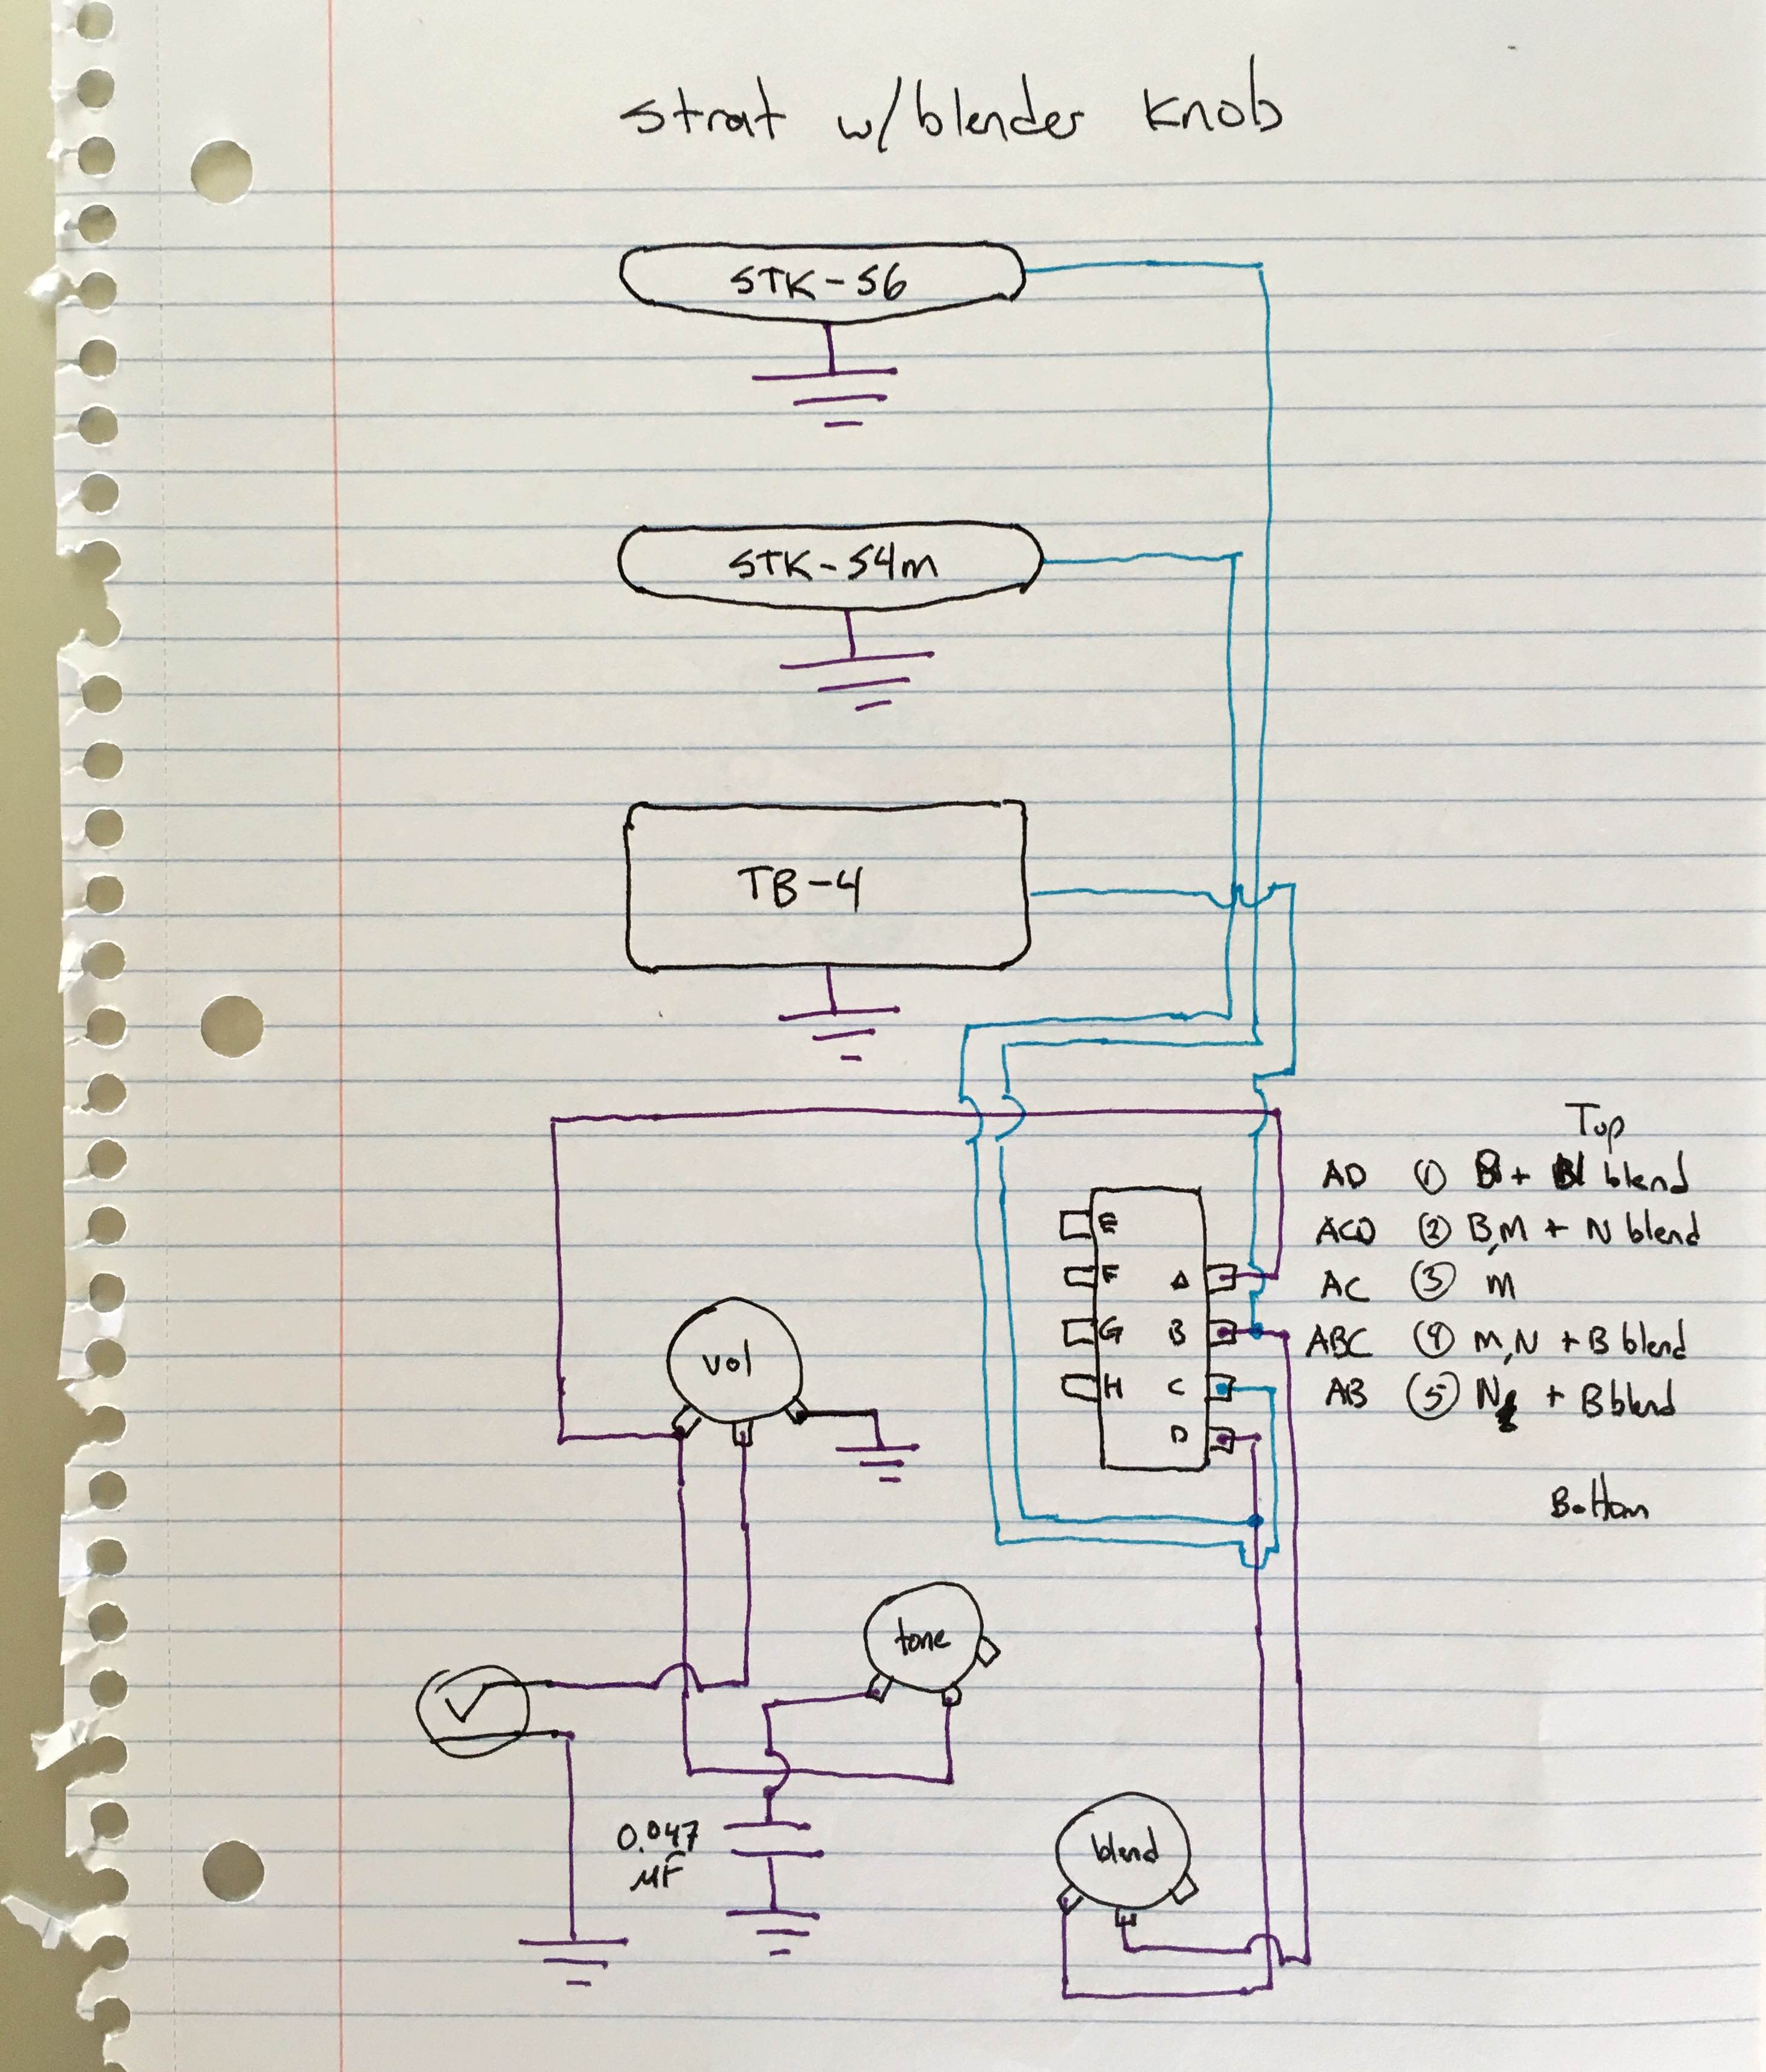 Strat w/blender knob
STK-S6
STK-S4m
TB-4
Top
AD ① B + blend
ACD ② B,M + N blend
AC ③ M
ABC ④ M,N + B blend
AB ⑤ N + B blend
Bottom
E
F A
G B
H C
D
vol
tone
0.047
μF
blend